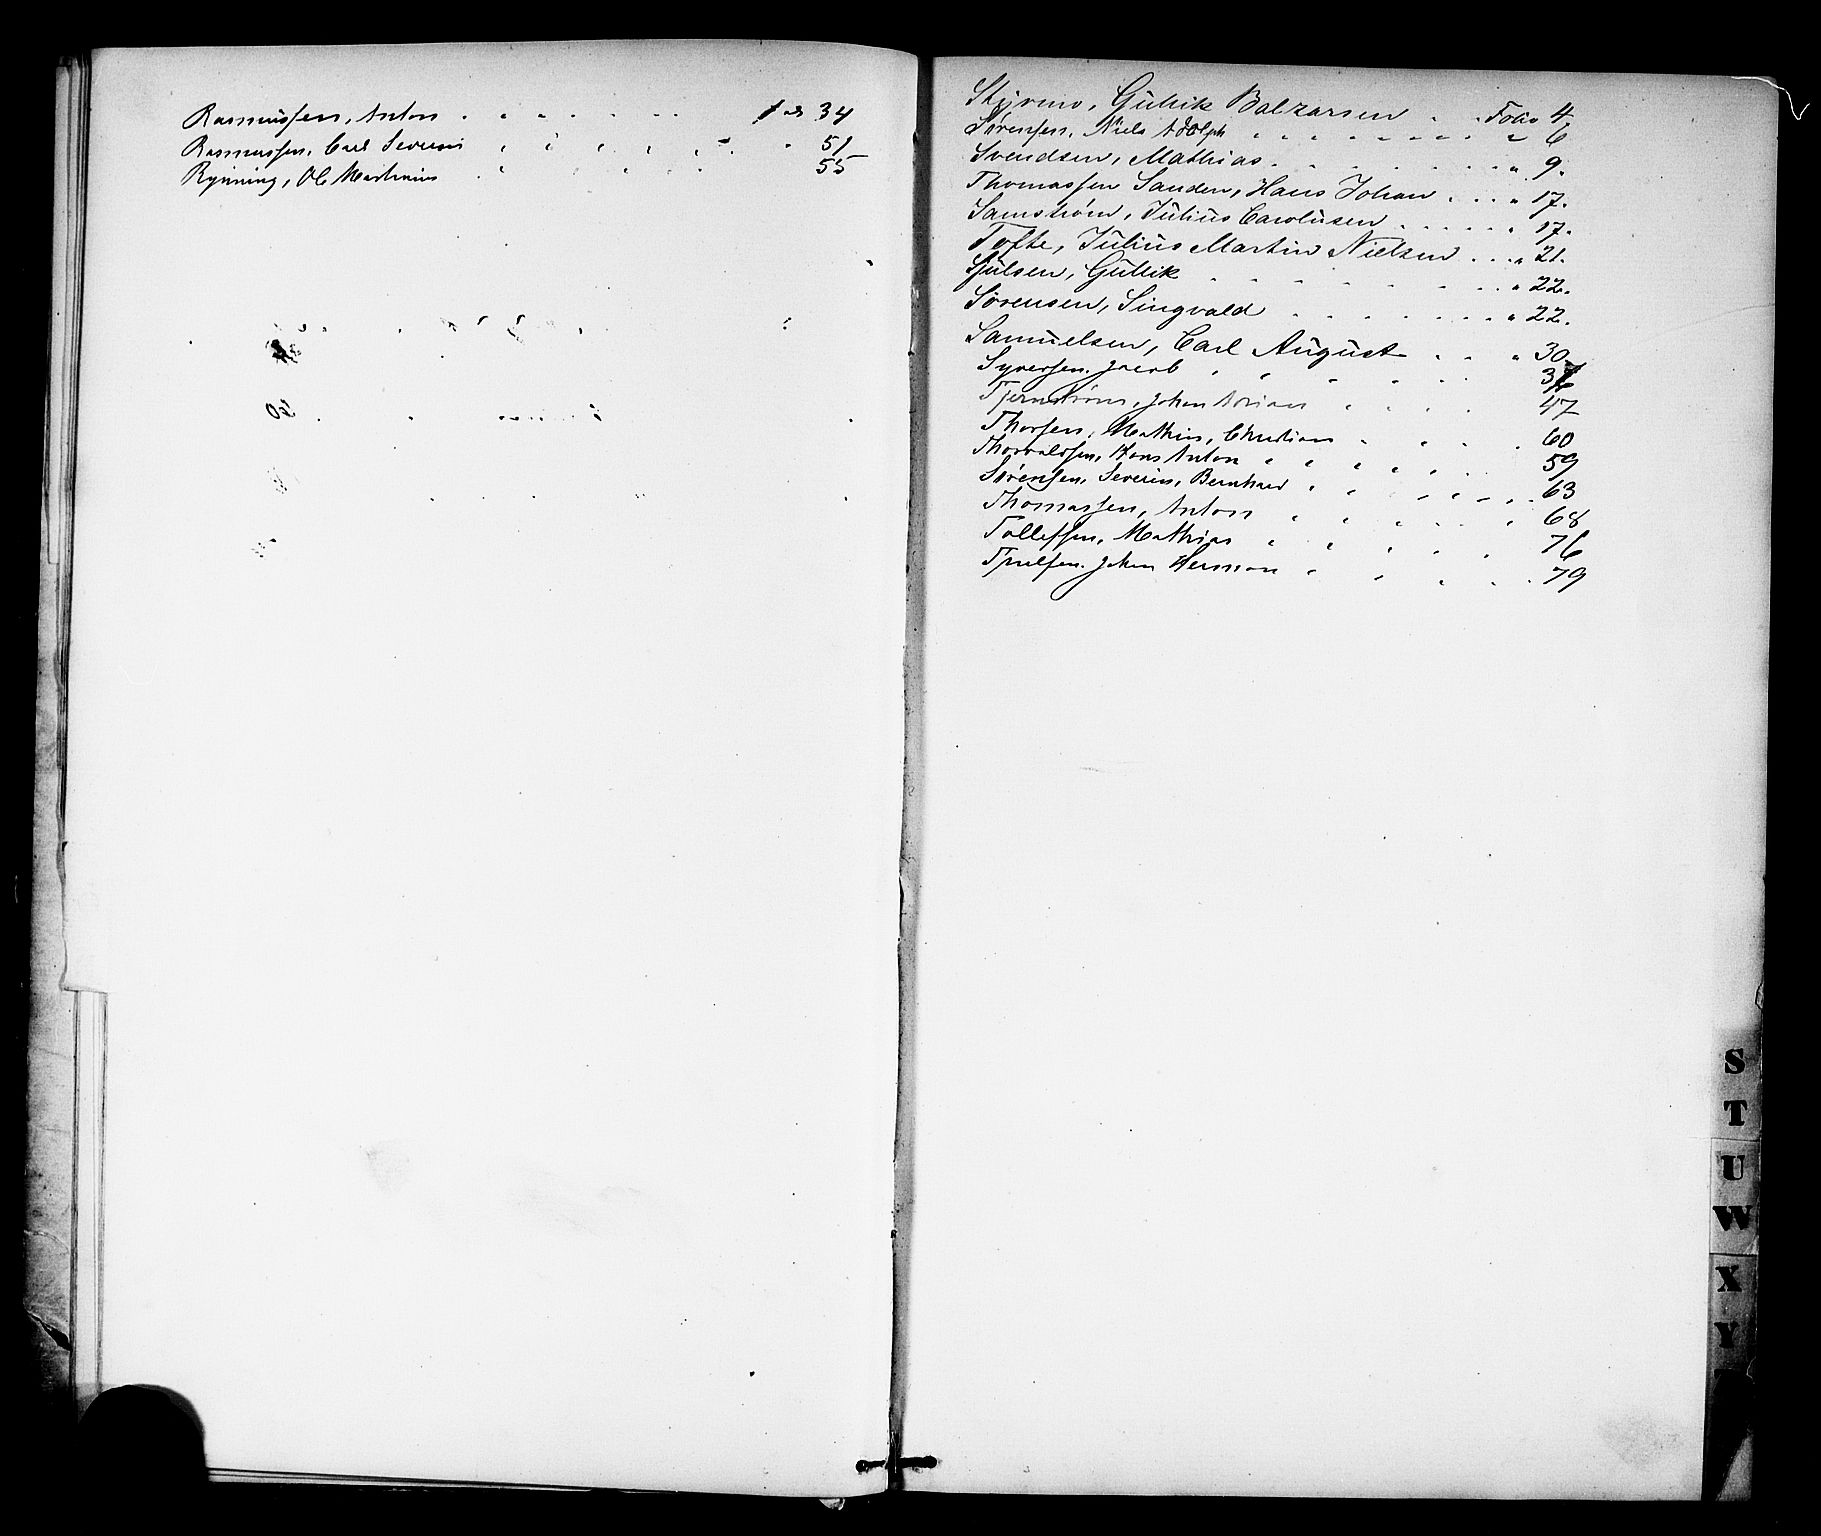 Rasmussen, Anton 34
Rasmussen, Carl Severin 51
Rynning, Ol. Marthinius 55
Styrmo, Gullik Balzarsen Folio 4.
Sørensen, Niels Adolph " 6
Svendsen, Mathias " 9.
Thomassen Sanden, Hans Johan " 17.
Samstrøm, Julius Carolusen " 17.
Tofte, Julius Martin Nielsen " 21.
Sjulsen, Gullik " 22.
Sørensen, Singvald " 22.
Samuelsen, Carl August " 30
Syversen, Jacob
Tjernstrøm, Johan Adrian 47
Thorsen, Mathias, Christian 60
Thorvaldsen, Hans Anton 59
Sørensen, Severin, Bernhard 63
Thomassen, Anton 68
Tollefsen, Mathias 76
Johan Herman 79
S
T
U
W
X
Y